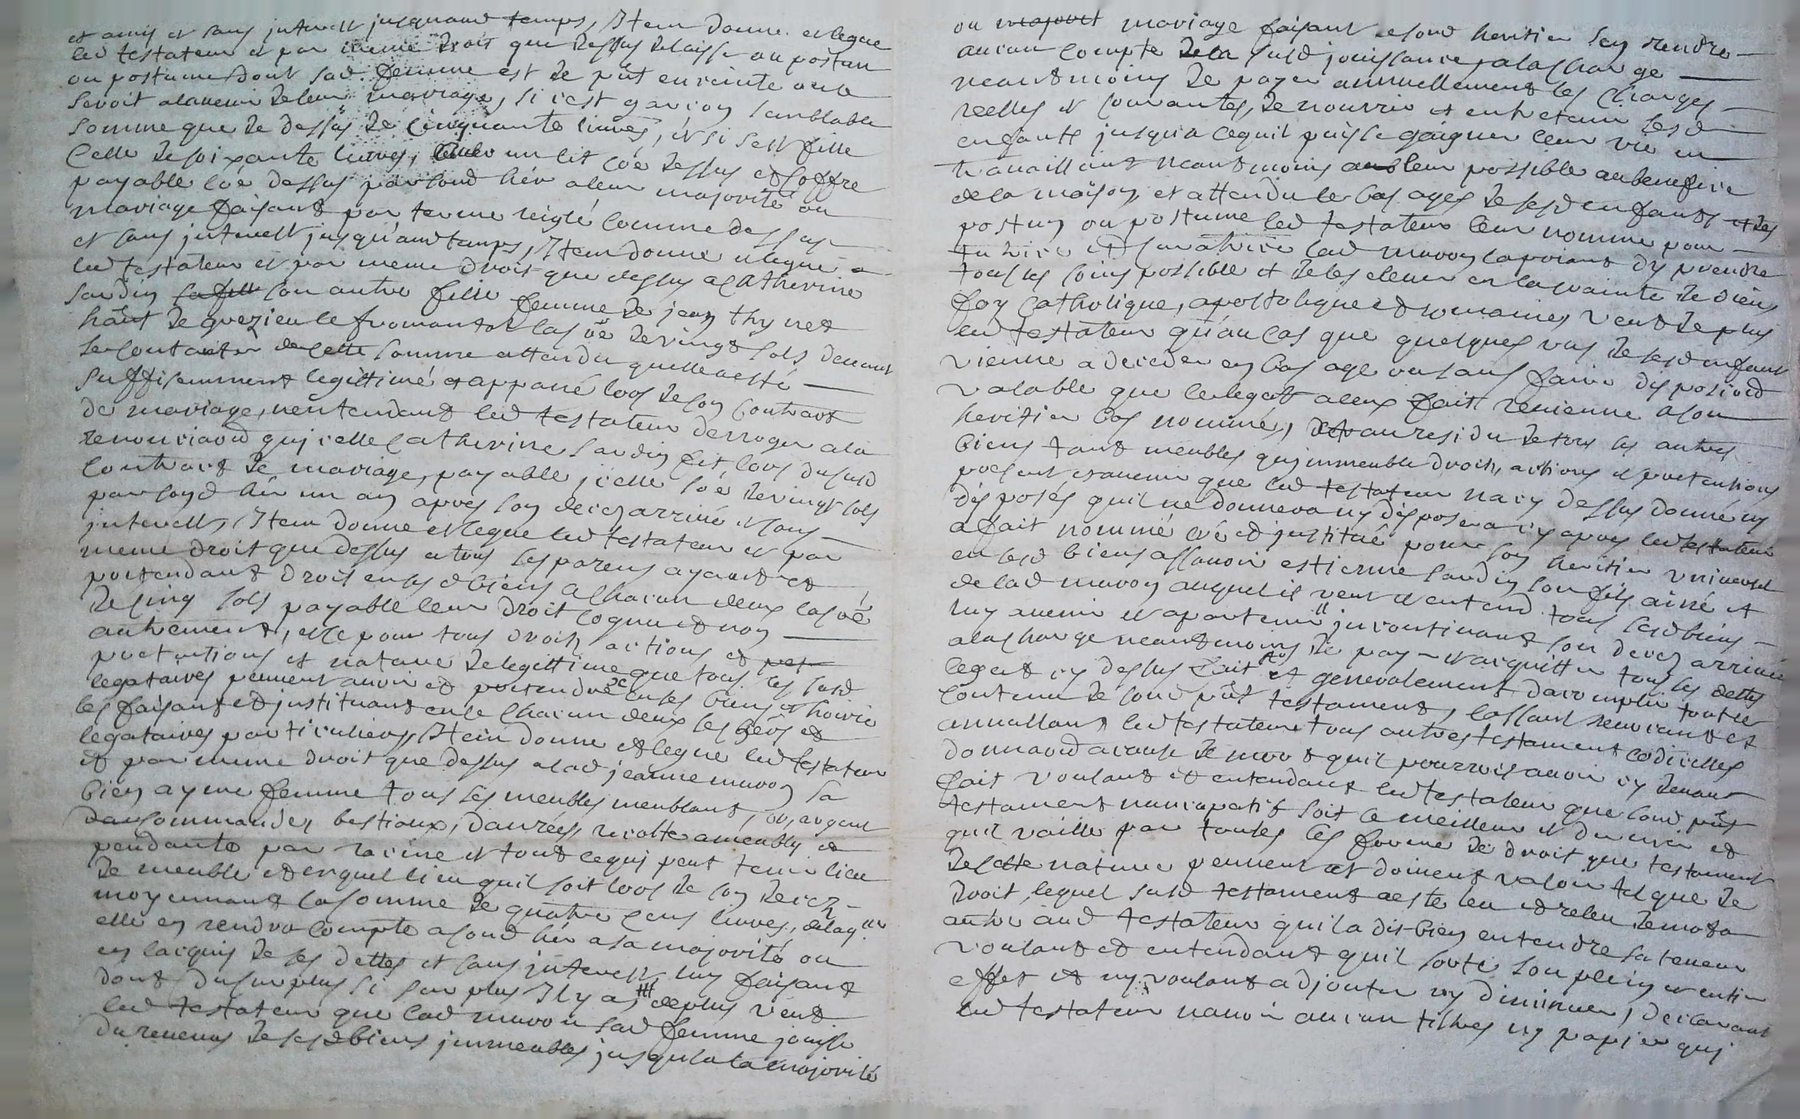 et sans interestz jusquaud temps, Item donne et legue
led testateur et par meme droit que dessus delaisse au postum
ou postume dont sad femme est de pnt enceinte ou le
seroit alavenir de leur mariage, si cest garçon semblable
somme que de dessus de cinquante livres, et si cest fille
celle de soixante livres, un lit coe dessus et coffre
payable coe dessus par sond hér a leur majorité ou
mariage faisant par terme reiglé comme dessus
et sans interestz jusqu'aud temps, Item donne et legue
led testateur et par meme droit que dessus a Catherine
sardin son autre fille femme de jean thynet
hant de grezieu le fromantal la soe de vingt sols devant
se contanter de cette somme attendu quelle a esté
suffisemment legittimé et appané lors de son contract
de mariage, nentendant led testateur derroger a la
renonciaon quicelle Catherine sardin fit lors dususd
contract de mariage, payable icelle soe de vingt sols
par sond hér un an apres son decez arrivé et sans
interestz, Item donne et legue led testateur et par
meme droit que dessus a tous ses parens ayant et
pretendant droit en ses d biens a chacun deux la soe
de cinq sols payable leur droit cognu et non
autrement, et ce pour tous droits, actions et
pretentions et nature de legittime que tous les susd
legataires peuvent avoir et pretendre en ses biens et hoirie
les faisant et instituant en ce chacun deux ses hérs et
legataires particuliers, Item donne et legue led testateur
et par meme droit que dessus a lad jeanne mavon sa
bien aymé femme tous ses meubles meublant, or, argent
danrées, bestiaux, danrées, recolte ameublis et
pendante par racine et tout ce qui peut tenir lieu
de meuble et en quel lieu quil soit lors de son decez
moyennant la somme de quatre cens livres, de laqlle
elle en rendra compte a sond hér a sa majorité ou
en lacquis de ses dettes et sans interestz luy faisant
dont du surplus si surplus Il y a, de plus veut
led testateur que lad mavon sad femme jouisse
du revenus de sesd biens immeubles jusqu'a la majorité
ou mariage faisant de sond heritier sen rendre
aucun compte de la susd jouissance, a la charge
neantmoins de payer annuellement les charges
reelles et courantes, de nourrir et entretenir lesd
enfants jusqu'a ce quil puisse gaigner leur vie en
travaillant neantmoins a leur possible au benefice
de la maison, et attendu le bas ages de sesd enfants
postum ou postume led testateur leur nomme pour
tutrice et curatrice lad mavon la priant dy prendre
tous les soins possible et de les elever en la crainte de dieu
foy catholique, apostolique et romaine, veut de plus
led testateur qu'au cas que quelques uns de sesd enfants
vienne a deceder en bas age ou sans faire disposiond
valable que le legat a eux fait revienne a son
heritier bas nommé, au residu de tous les autres
biens tant meubles qu'immeuble droits, actions et pretentions
present et avenir que led testateur na cy dessus donné ny
disposés quil ne donnera ny disposera cy apres led testateur
a fait nommé créé et institué pour son heritier universel
en sesd biens assavoir estienne sardin son fils ainé et
de lad mavon auquel il veut et entend tous sesd biens
luy avenir et apartenir incontinant son decez arrivé
a la charge neantmoins de payer et acquitter tous ses dettes
legat cy dessus fait et generalement daccomplir tout le
contenu de sond pnt testament, cassant revocant et
annullant led testateur tous autres testament codicilles
donnaond a cause de mort quil pourroit avoir cy devant
fait voulant et entendant led testateur que sond pnt
testament nuncupatif soit le meilleur et dernier et
quil vaille par toutes les forme de droit que testament
de cette nature peuvent et doivent valoir tel que de
droit, lequel susd testament a este leu et releu de mot a
autre aud testateur quil a dit bien entendre sa teneur
voulant et entendant quil sorte son plein et entier
effet et ny voulant adjouter ny diminuer, declarant
led testateur navoir aucun tiltres ny papier qui